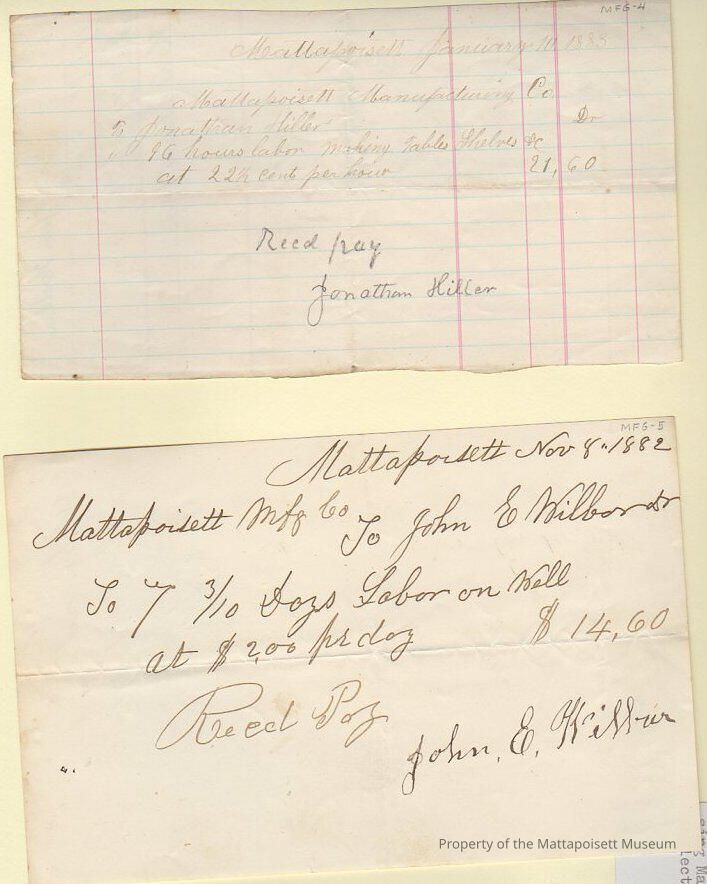 MFG-4
Mattapoisett January 10 1883
Mattapoisett Manufacturing Co
To Jonathan Hiller Dr
" 96 hours labor making Tables Shelves &c
at 22½ cent per hour 21,60
Recd pay
Jonathan Hiller
MFG-5
Mattapoisett Nov 8" 1882
Mattapoisett Mfg Co To John E Wilbor Dr
To 7 3/10 Days Labor on Well
at $2,00 pr day $ 14,60
Recd Pay
John. E. Wilbur
Property of the Mattapoisett Museum